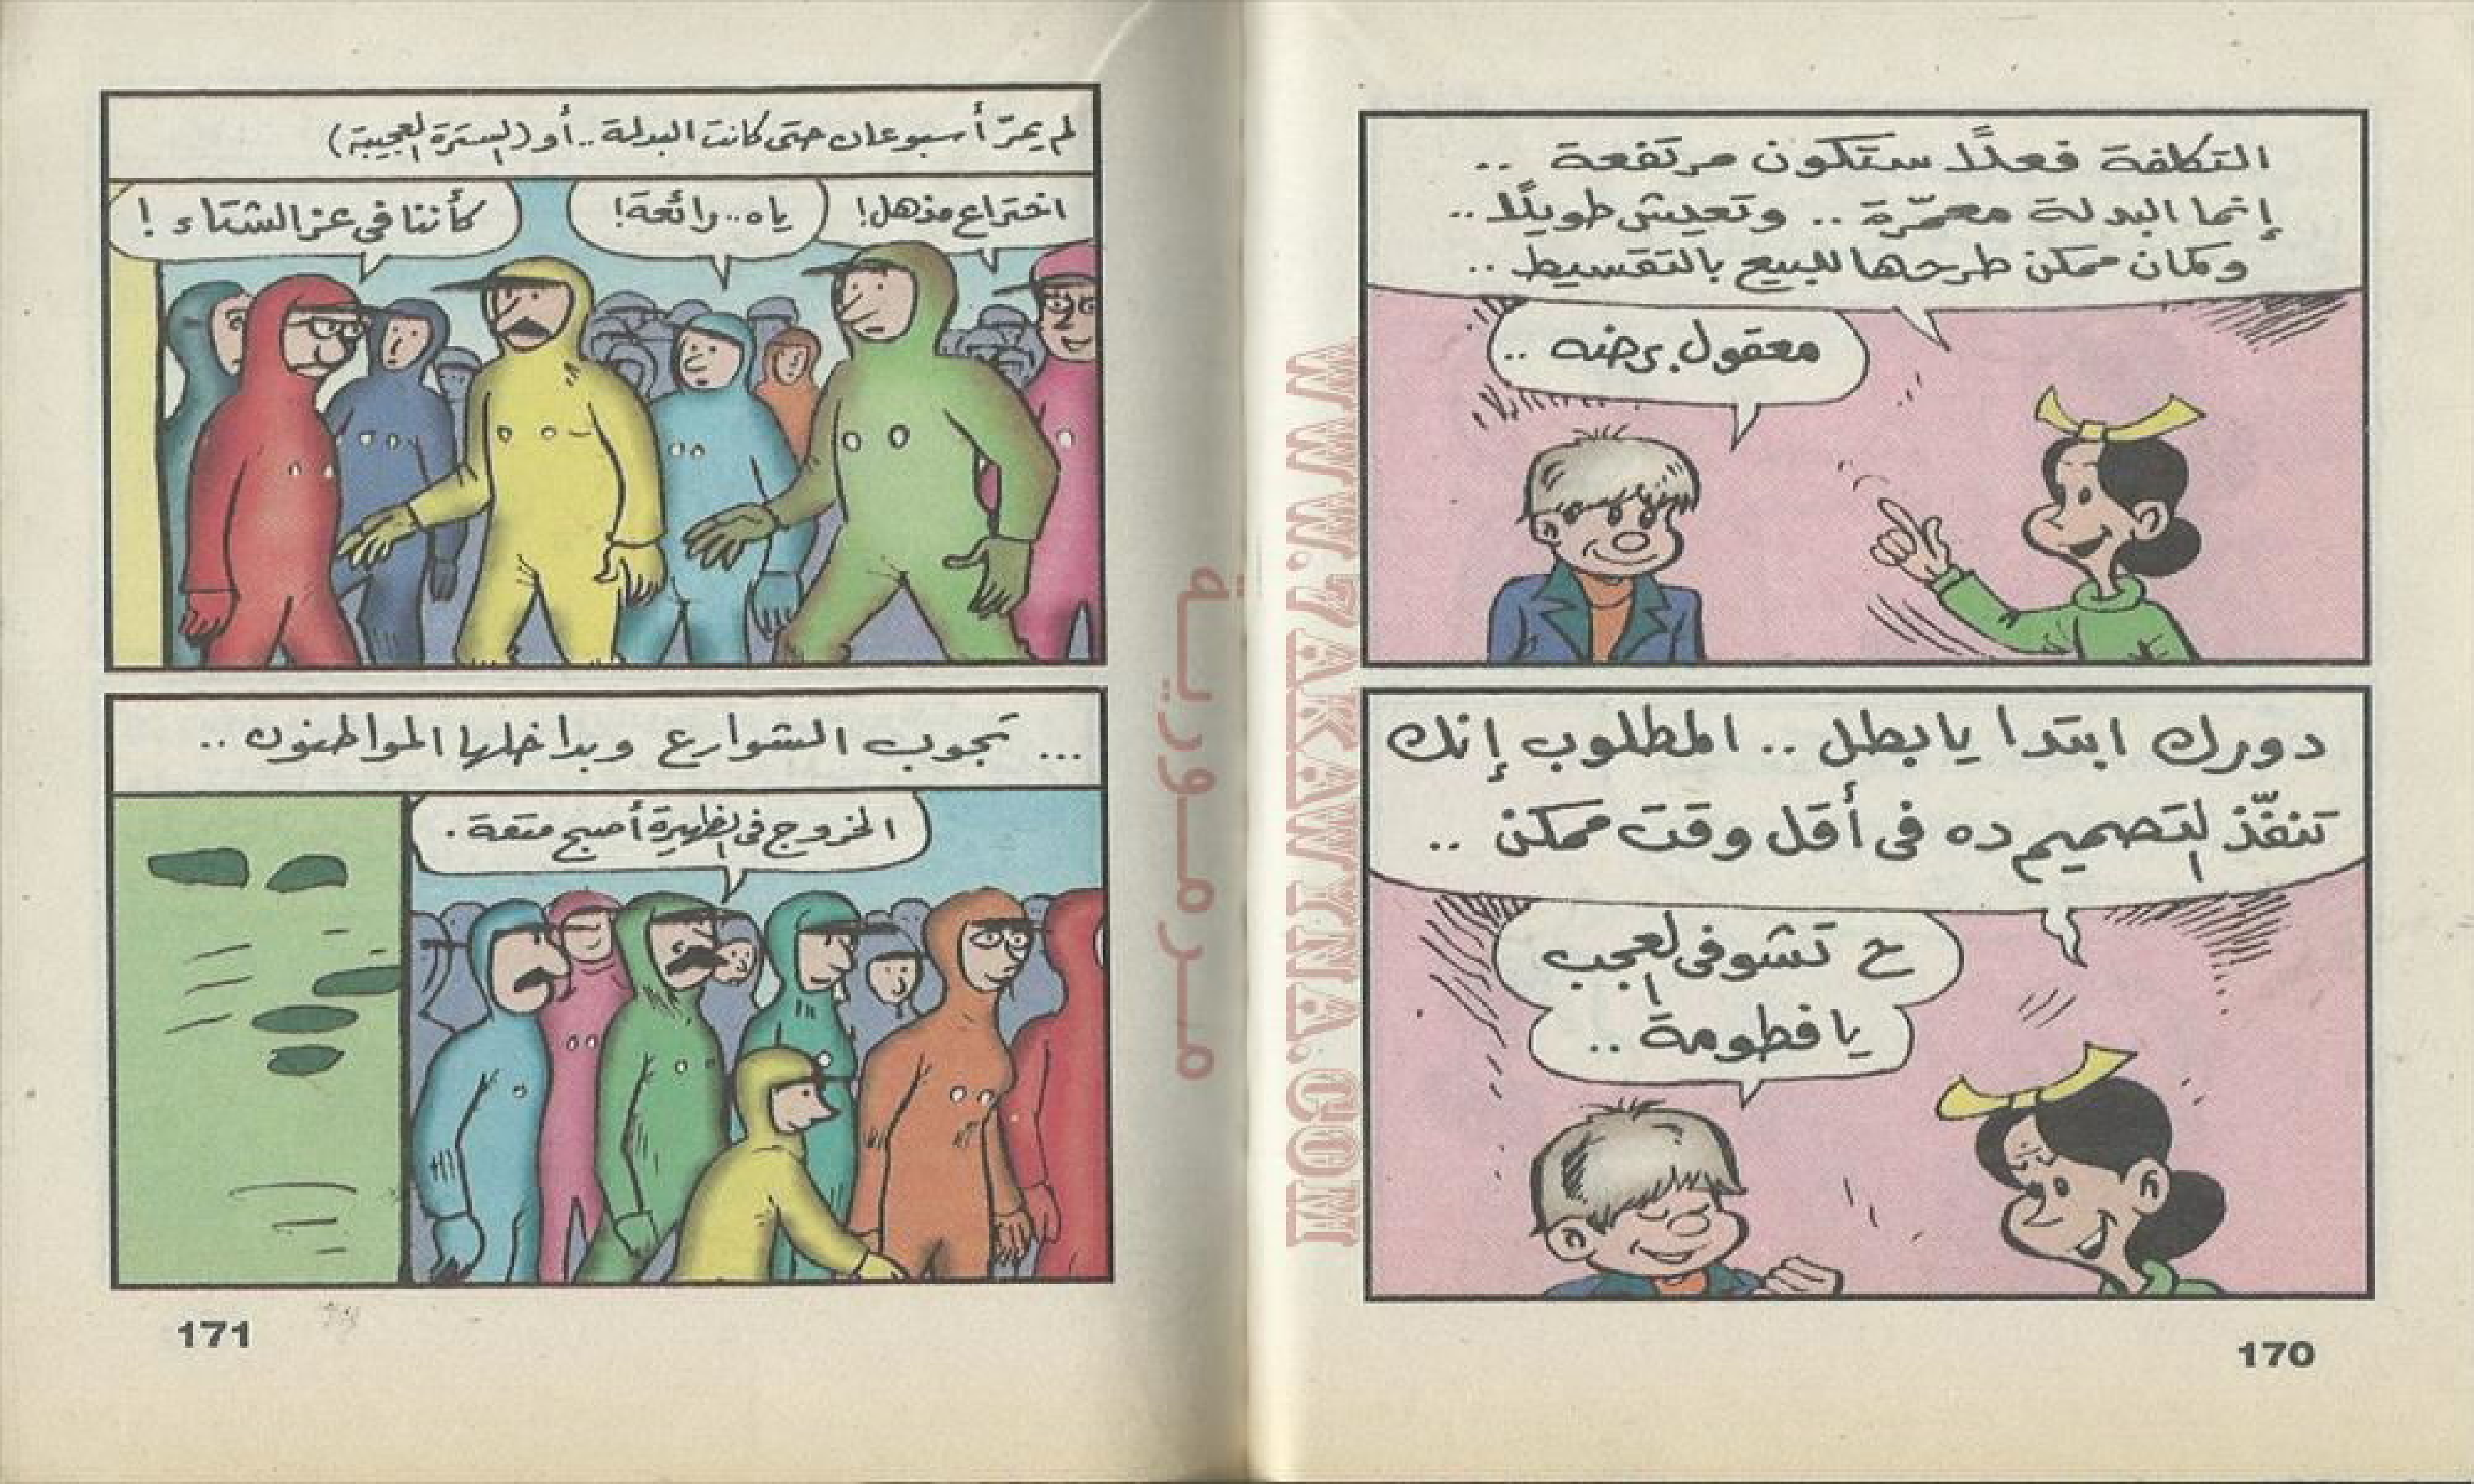 التكلفة فعلاً ستكون مرتفعة ..
إنما البدلة معمّرة .. وتعيش طويلًا ..
وكمان ممكن طرحها للبيع بالتقسيط ..
معقول برضه ..
دورك ابتدا يا بطل .. المطلوب إنك
تنفّذ التصميم ده فى أقل وقت ممكن ..
ح تشوفى العجب
يا فطومة ..
170
لم يمرّ أسبوعان حتى كانت البدلة .. أو (السترة العجيبة)
اختراع مذهل!
ياه .. رائعة!
كأننا فى عز الشتاء !
... تجوب الشوارع وبداخلها المواطنون ..
الخروج فى الظهيرة أصبح متعة .
171
مرمورية
WWW.7AKAWYINA.COM